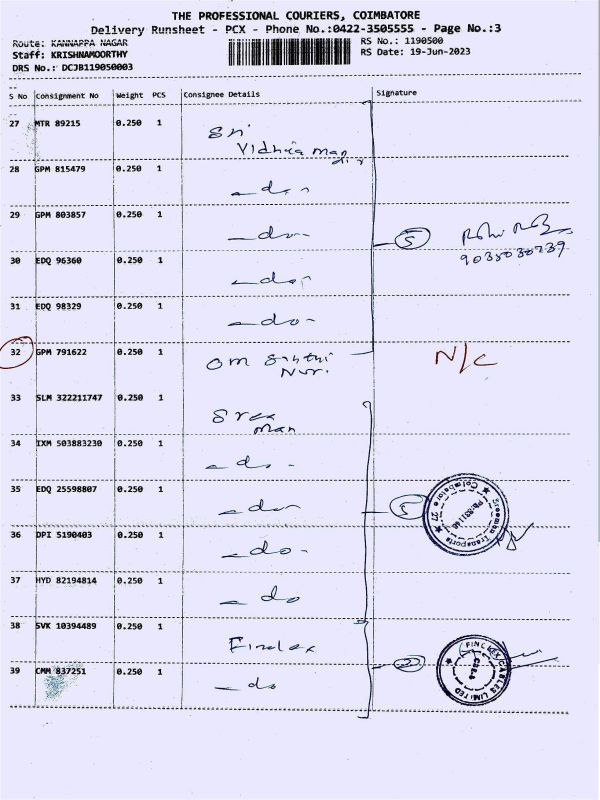 THE PROFESSIONAL COURIERS, COIMBATORE
Delivery Runsheet - PCX - Phone No.:0422-3505555 - Page No.:3
Route: KANNAPPA NAGAR
RS No.: 1190500
Staff: KRISHNAMOORTHY
RS Date: 19-Jun-2023
DRS No.: DCJB119050003
S No Consignment No Weight PCS Consignee Details Signature
27 MTR 89215 0.250 1 Sri
Vidhya Mandir
28 GPM 815479 0.250 1 - do -
29 GPM 803857 0.250 1 - do -
5
30 EDQ 96360 0.250 1 - do -
31 EDQ 98329 0.250 1 - do -
32 GPM 791622 0.250 1 Om N/C
33 SLM 322211747 0.250 1 Sree
man
34 IXM 503883230 0.250 1 - do -
35 EDQ 25598807 0.250 1 - do -
5 Sreeman Transports
Coimbatore
36 DPI 5190403 0.250 1 - do -
37 HYD 82194814 0.250 1 - do
38 SVK 10394489 0.250 1 Finolex
39 CMM 837251 0.250 1 - do
2 CABLES LIMITED